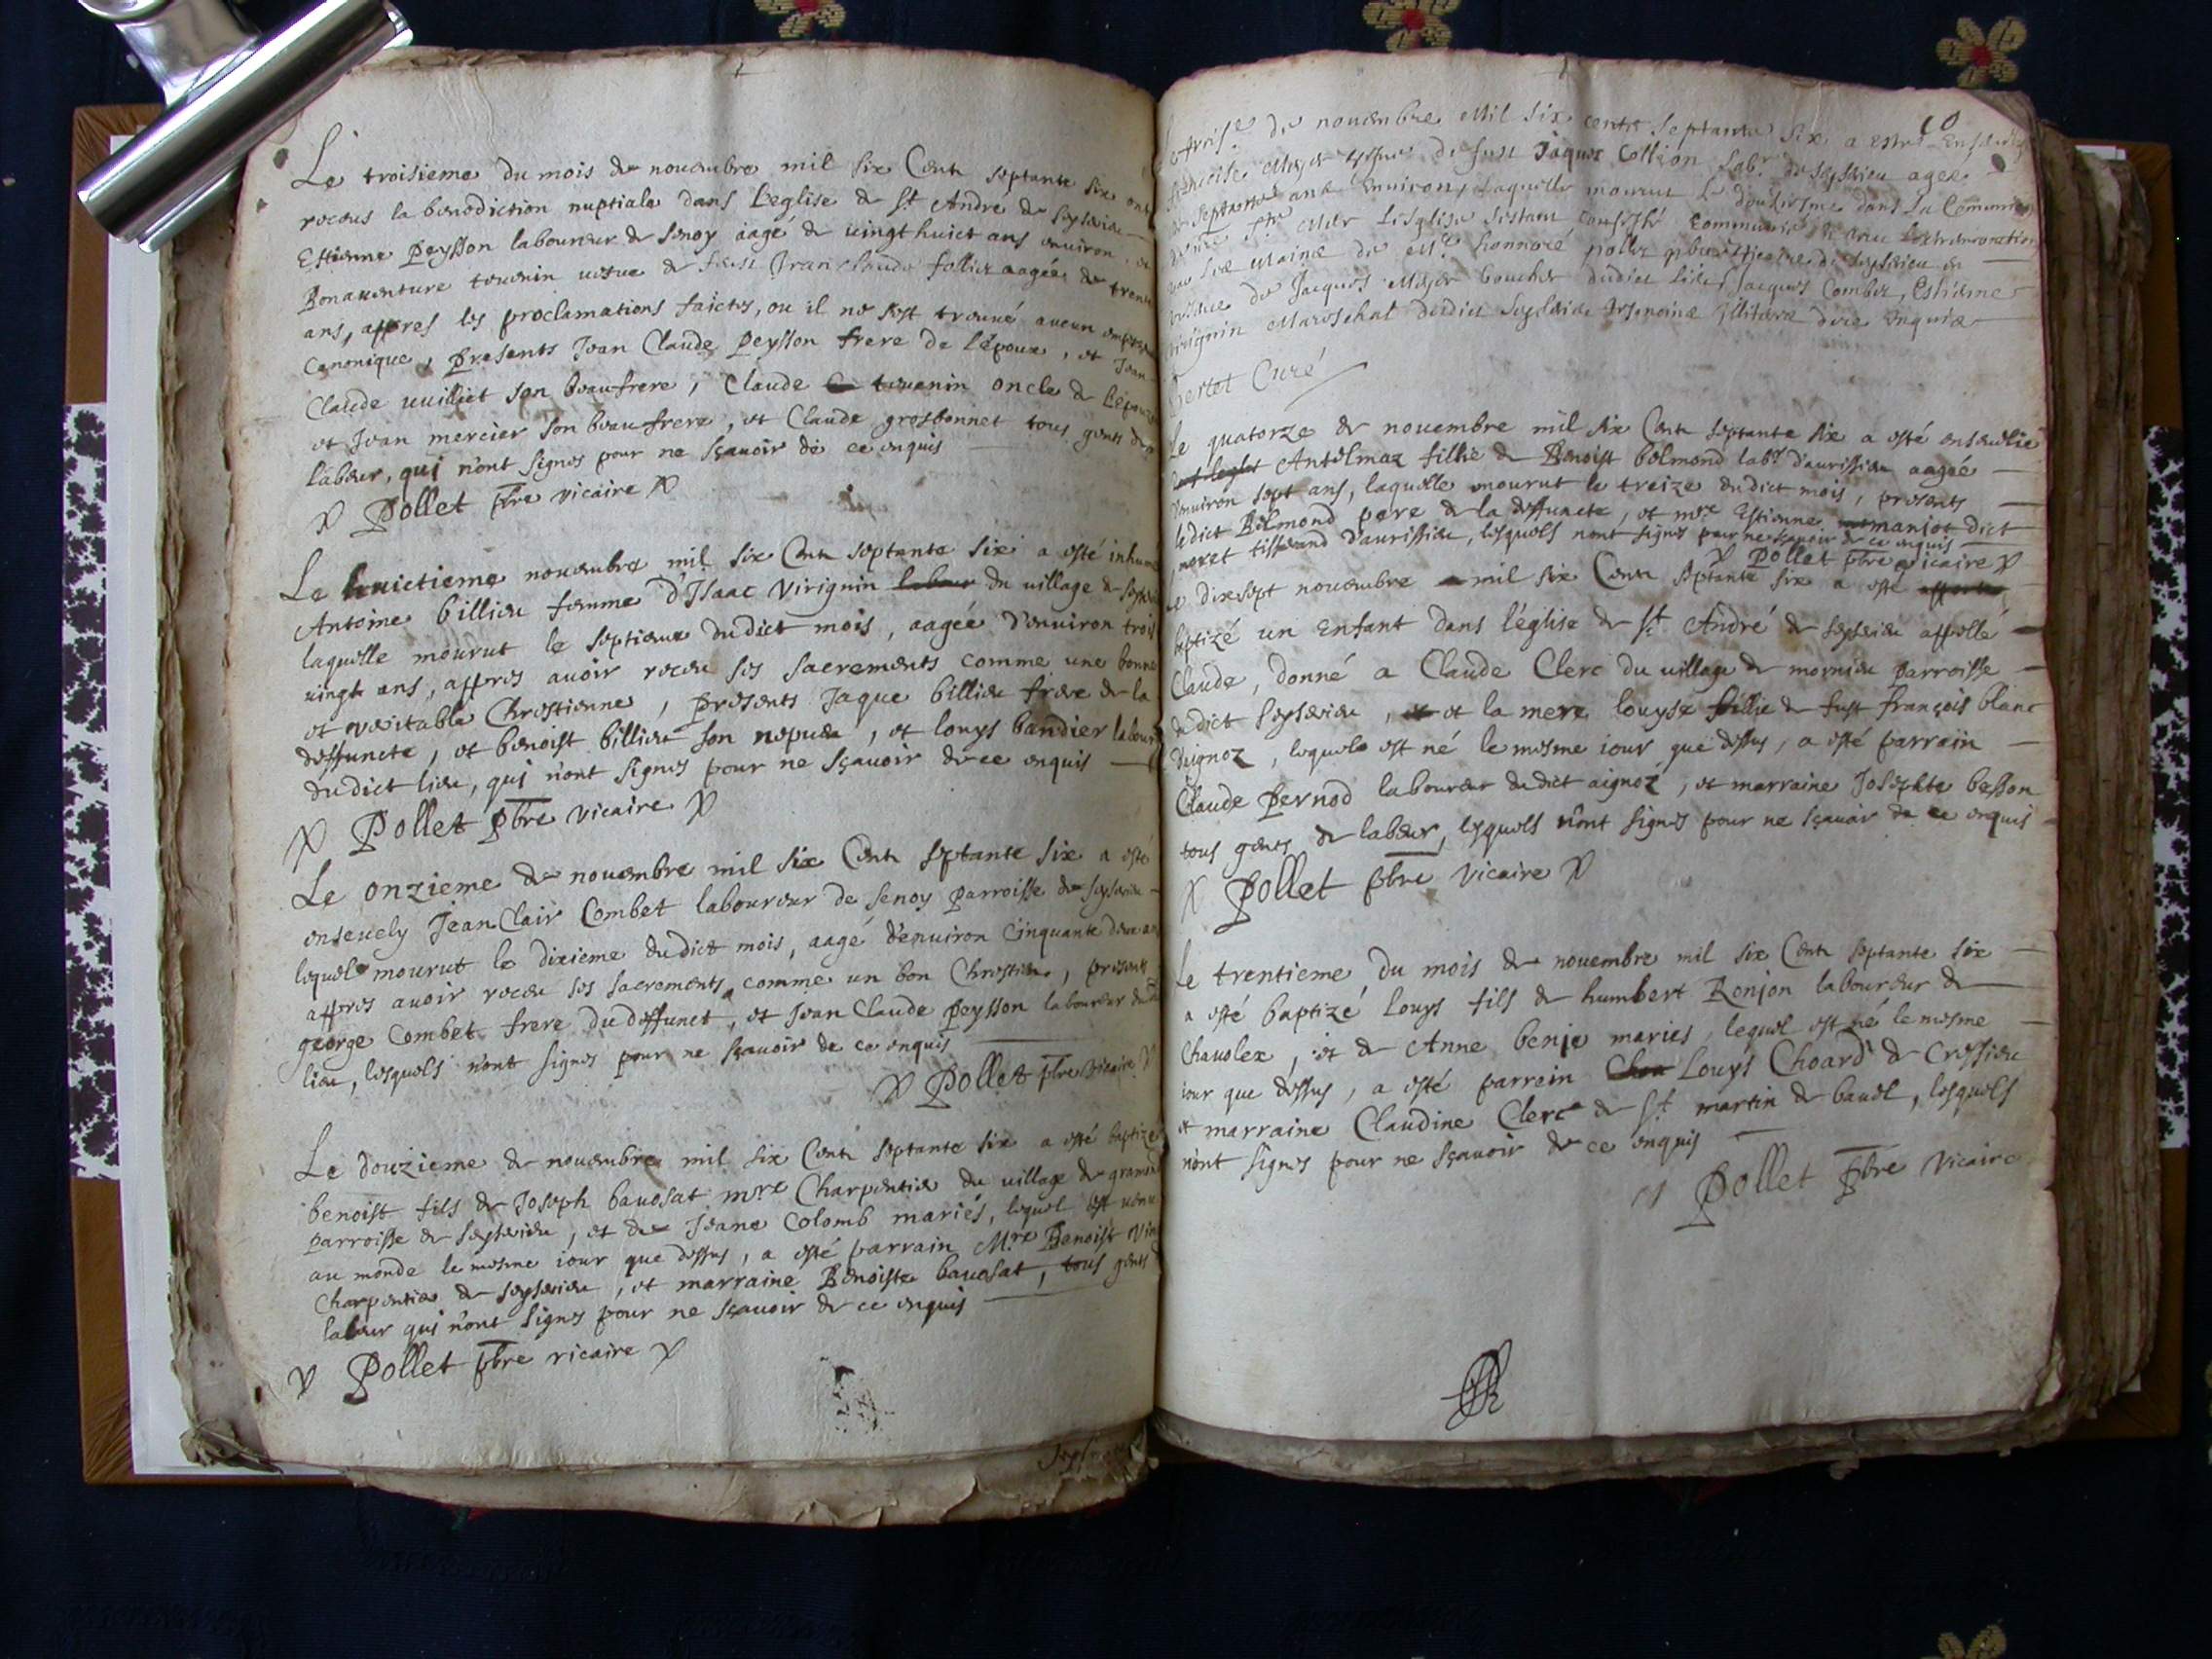 Le troisieme du mois de nouembre mil six Cents septante six ont
receus la benediction nuptiale dans L'eglise de St Andre de seysseieu
Estienne Peysson laboureur de senoy aagé de uingt huict ans enuiron, et
Bonauenture teuenin uesue de feust Jean Claude follier aagée de trente
ans, appres les proclamations faictes, ou il ne sest trouué aucun
Canonique, Presents Jean Claude Peysson frere de L'époux, et Jean
Claude uuilliet son beaufrere, Claude teuenin oncle de L'epouse
et Jean mercier son beaufrere, et Claude grosbonnet tous gents de
labeur, qui n'ont signes pour ne sçauoir de ce enquis
Pollet pbre vicaire
Le huictieme nouembre mil six Cents septante six a esté inhumé
Antoine billieu femme d'Isaac Virignin du uillage de
laquelle mourut le septieme dudict mois, aagée d'enuiron trois
uingts ans, appres auoir receu ses sacrements comme une bonne
et ueritable Chrestienne, Presents Jaque billieu frere de la
deffuncte, et benoist billieu son nepueu, et louys bandier labour
dudict lieu, qui n'ont signes pour ne sçauoir de ce enquis
Pollet pbre vicaire
Le onzieme de nouembre mil six Cents septante six a esté
enseuely Jean Clair Combet laboureur de senoy parroisse de seysseieu
lequel mourut le dixieme dudict mois, aagé d'enuiron Cinquante deux ans
appres auoir receu ses sacrements comme un bon Chrestien, presents
george Combet frere du deffunct, et Jean Claude Peysson laboureur dudict
lieu, lesquels n'ont signes pour ne sçauoir de ce enquis
Pollet pbre vicaire
Le douzieme de nouembre mil six Cents septante six a esté baptizé
benoist fils de Joseph bauosat mre Charpentier du uillage de
parroisse de seysseieu, et de Jeane Colomb mariés, lequel est uenu
au monde le mesme iour que dessus, a esté parrain Mre Benoist
Charpentier de seysseieu, et marraine Benoiste bauosat, tous gents
labeur qui n'ont signes pour ne sçauoir de ce enquis
Pollet pbre vicaire
10
de nouembre Mil six cents septante six a esté
de fust Jaques Collion Labr de seysseieu agee
septante ans enuiron, Laquelle mourut Le douziesme dans La Communion
de nre Ste Mere Lesglise sestant confessé Communié
de Mre honnoré pollet vicaire de seysseieu en
de Jacques boucher dudict lieu, Jacques Combet, Estienne
virignin Mareschal dudict
Curé
Le quatorze de nouembre mil six Cents septante six a esté enseuelie
Antelmaz fillie de Benoist bolmond labr d'aurissieu aagée
d'enuiron sept ans, laquelle mourut le treize dudict mois, presents
ledict Bolmond pere de la deffuncte, et mre Estienne manjot dict
moret tisserand d'aurissieu, lesquels nont signes pour ne sçauoir de ce enquis
Pollet pbre vicaire
Le dixsept nouembre mil six Cents septante six a esté
baptizé un Enfant dans l'église de St André de seysseieu appellé
Claude, donné a Claude Clerc du uillage de mornieu parroisse
dudict seysseieu, et la mere louyse fillie de fust françois blanc
d'aignoz, lequel est né le mesme iour que dessus, a esté parrain
Claude Pernod laboureur dudict aignoz, et marraine Josephte besson
tous gents de labeur, lesquels n'ont signes pour ne sçauoir de ce enquis
Pollet pbre vicaire
Le trentieme du mois de nouembre mil six Cents septante six
a esté baptizé Louys fils de humbert Ronjon laboureur de
Chauolex, et de Anne benje mariés, lequel est né le mesme
iour que dessus, a esté parrain Louys Choard de Cressieu
et marraine Claudine Clerc de St martin de bauel, lesquels
n'ont signes pour ne sçauoir de ce enquis
Pollet pbre vicaire